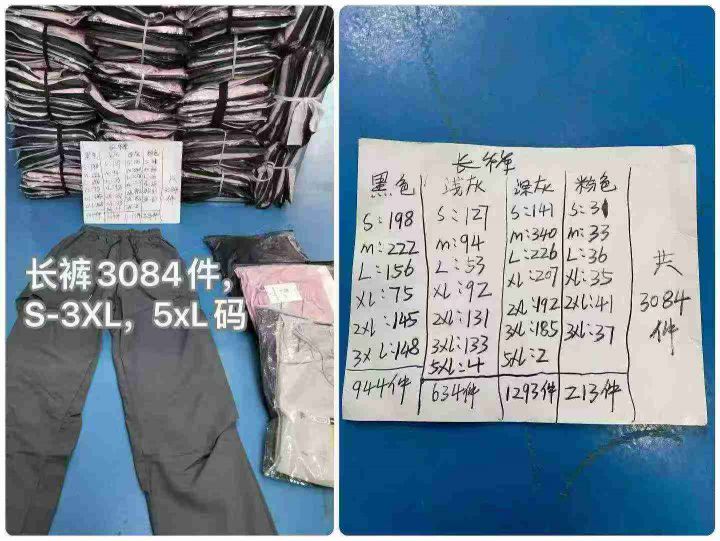 长裤3084件,
S-3XL, 5xL码
长裤
黑色 浅灰 深灰 粉色
S:198 S:127 S:141 S:31
m:222 m:94 m:340 m:33
L:156 L:53 L:226 L:36
XL:75 XL:92 XL:207 XL:35
2XL:145 2XL:131 2XL:192 2XL:41
3XL:148 3XL:133 3XL:185 3XL:37
5XL:4 5XL:2
944件 634件 1293件 213件
共
3084
件